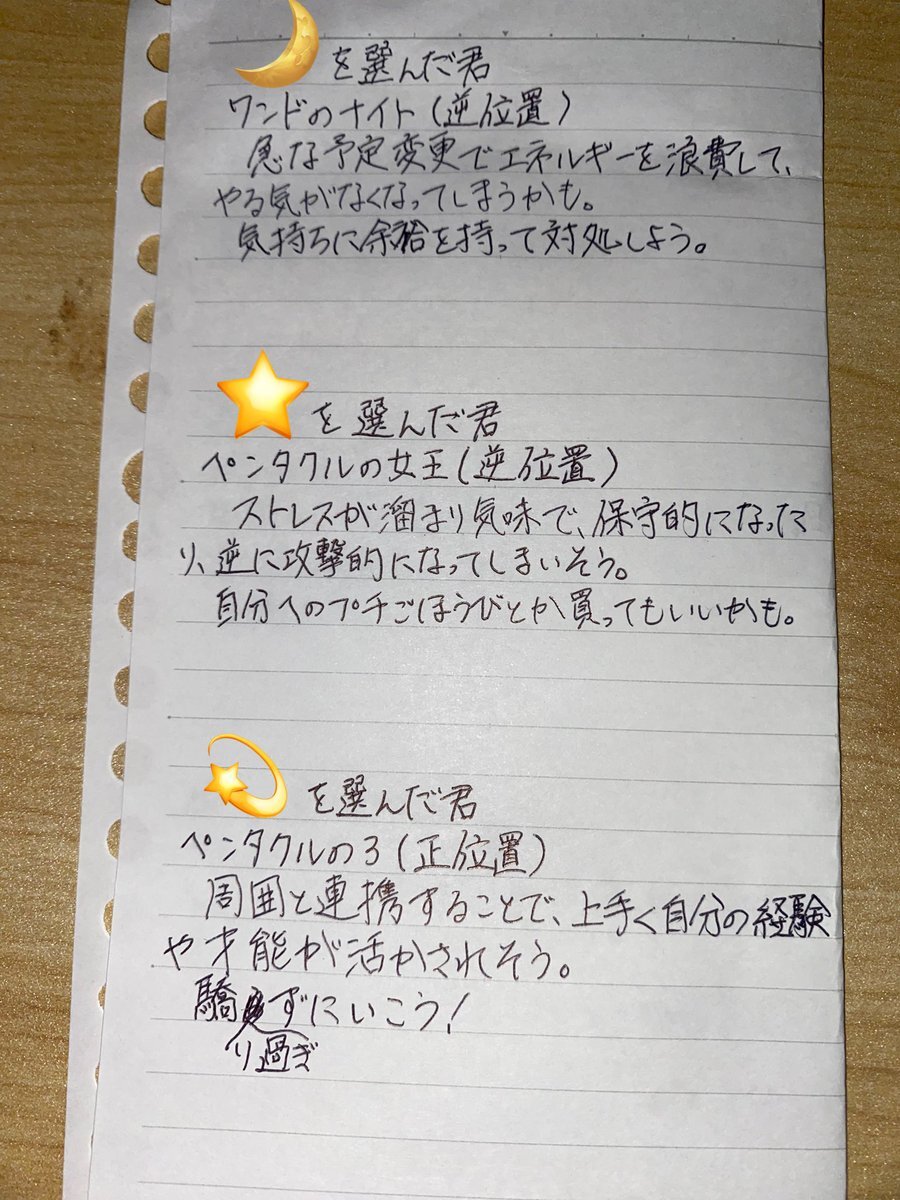 🌙を選んだ君
ワンドのナイト(逆位置)
急な予定変更でエネルギーを浪費して、
やる気がなくなってしまうかも。
気持ちに余裕を持って対処しよう。
⭐を選んだ君
ペンタクルの女王(逆位置)
ストレスが溜まり気味で、保守的になった
り、逆に攻撃的になってしまいそう。
自分へのプチごほうびとか買ってもいいかも。
💫を選んだ君
ペンタクルの3(正位置)
周囲と連携することで、上手く自分の経験
や才能が活かされそう。
驕り過ぎずにいこう!